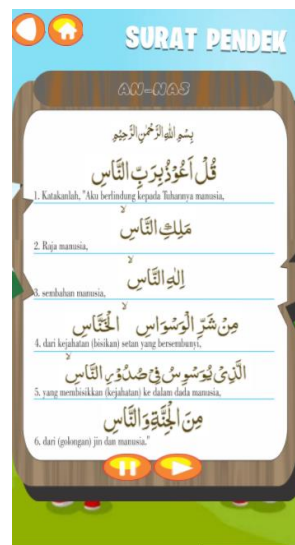 SURAT PENDEK
AN-NAS
بِسْمِ اللهِ الرَّحْمٰنِ الرَّحِيْمِ
قُلْ اَعُوْذُ بِرَبِّ النَّاسِ
1. Katakanlah, "Aku berlindung kepada Tuhannya manusia,
مَلِكِ النَّاسِۙ
2. Raja manusia,
اِلٰهِ النَّاسِۙ
3. sembahan manusia,
مِنْ شَرِّ الْوَسْوَاسِ ەۙ الْخَنَّاسِ
4. dari kejahatan (bisikan) setan yang bersembunyi,
الَّذِيْ يُوَسْوِسُ فِيْ صُدُوْرِ النَّاسِۙ
5. yang membisikkan (kejahatan) ke dalam dada manusia,
مِنَ الْجِنَّةِ وَالنَّاسِ
6. dari (golongan) jin dan manusia."